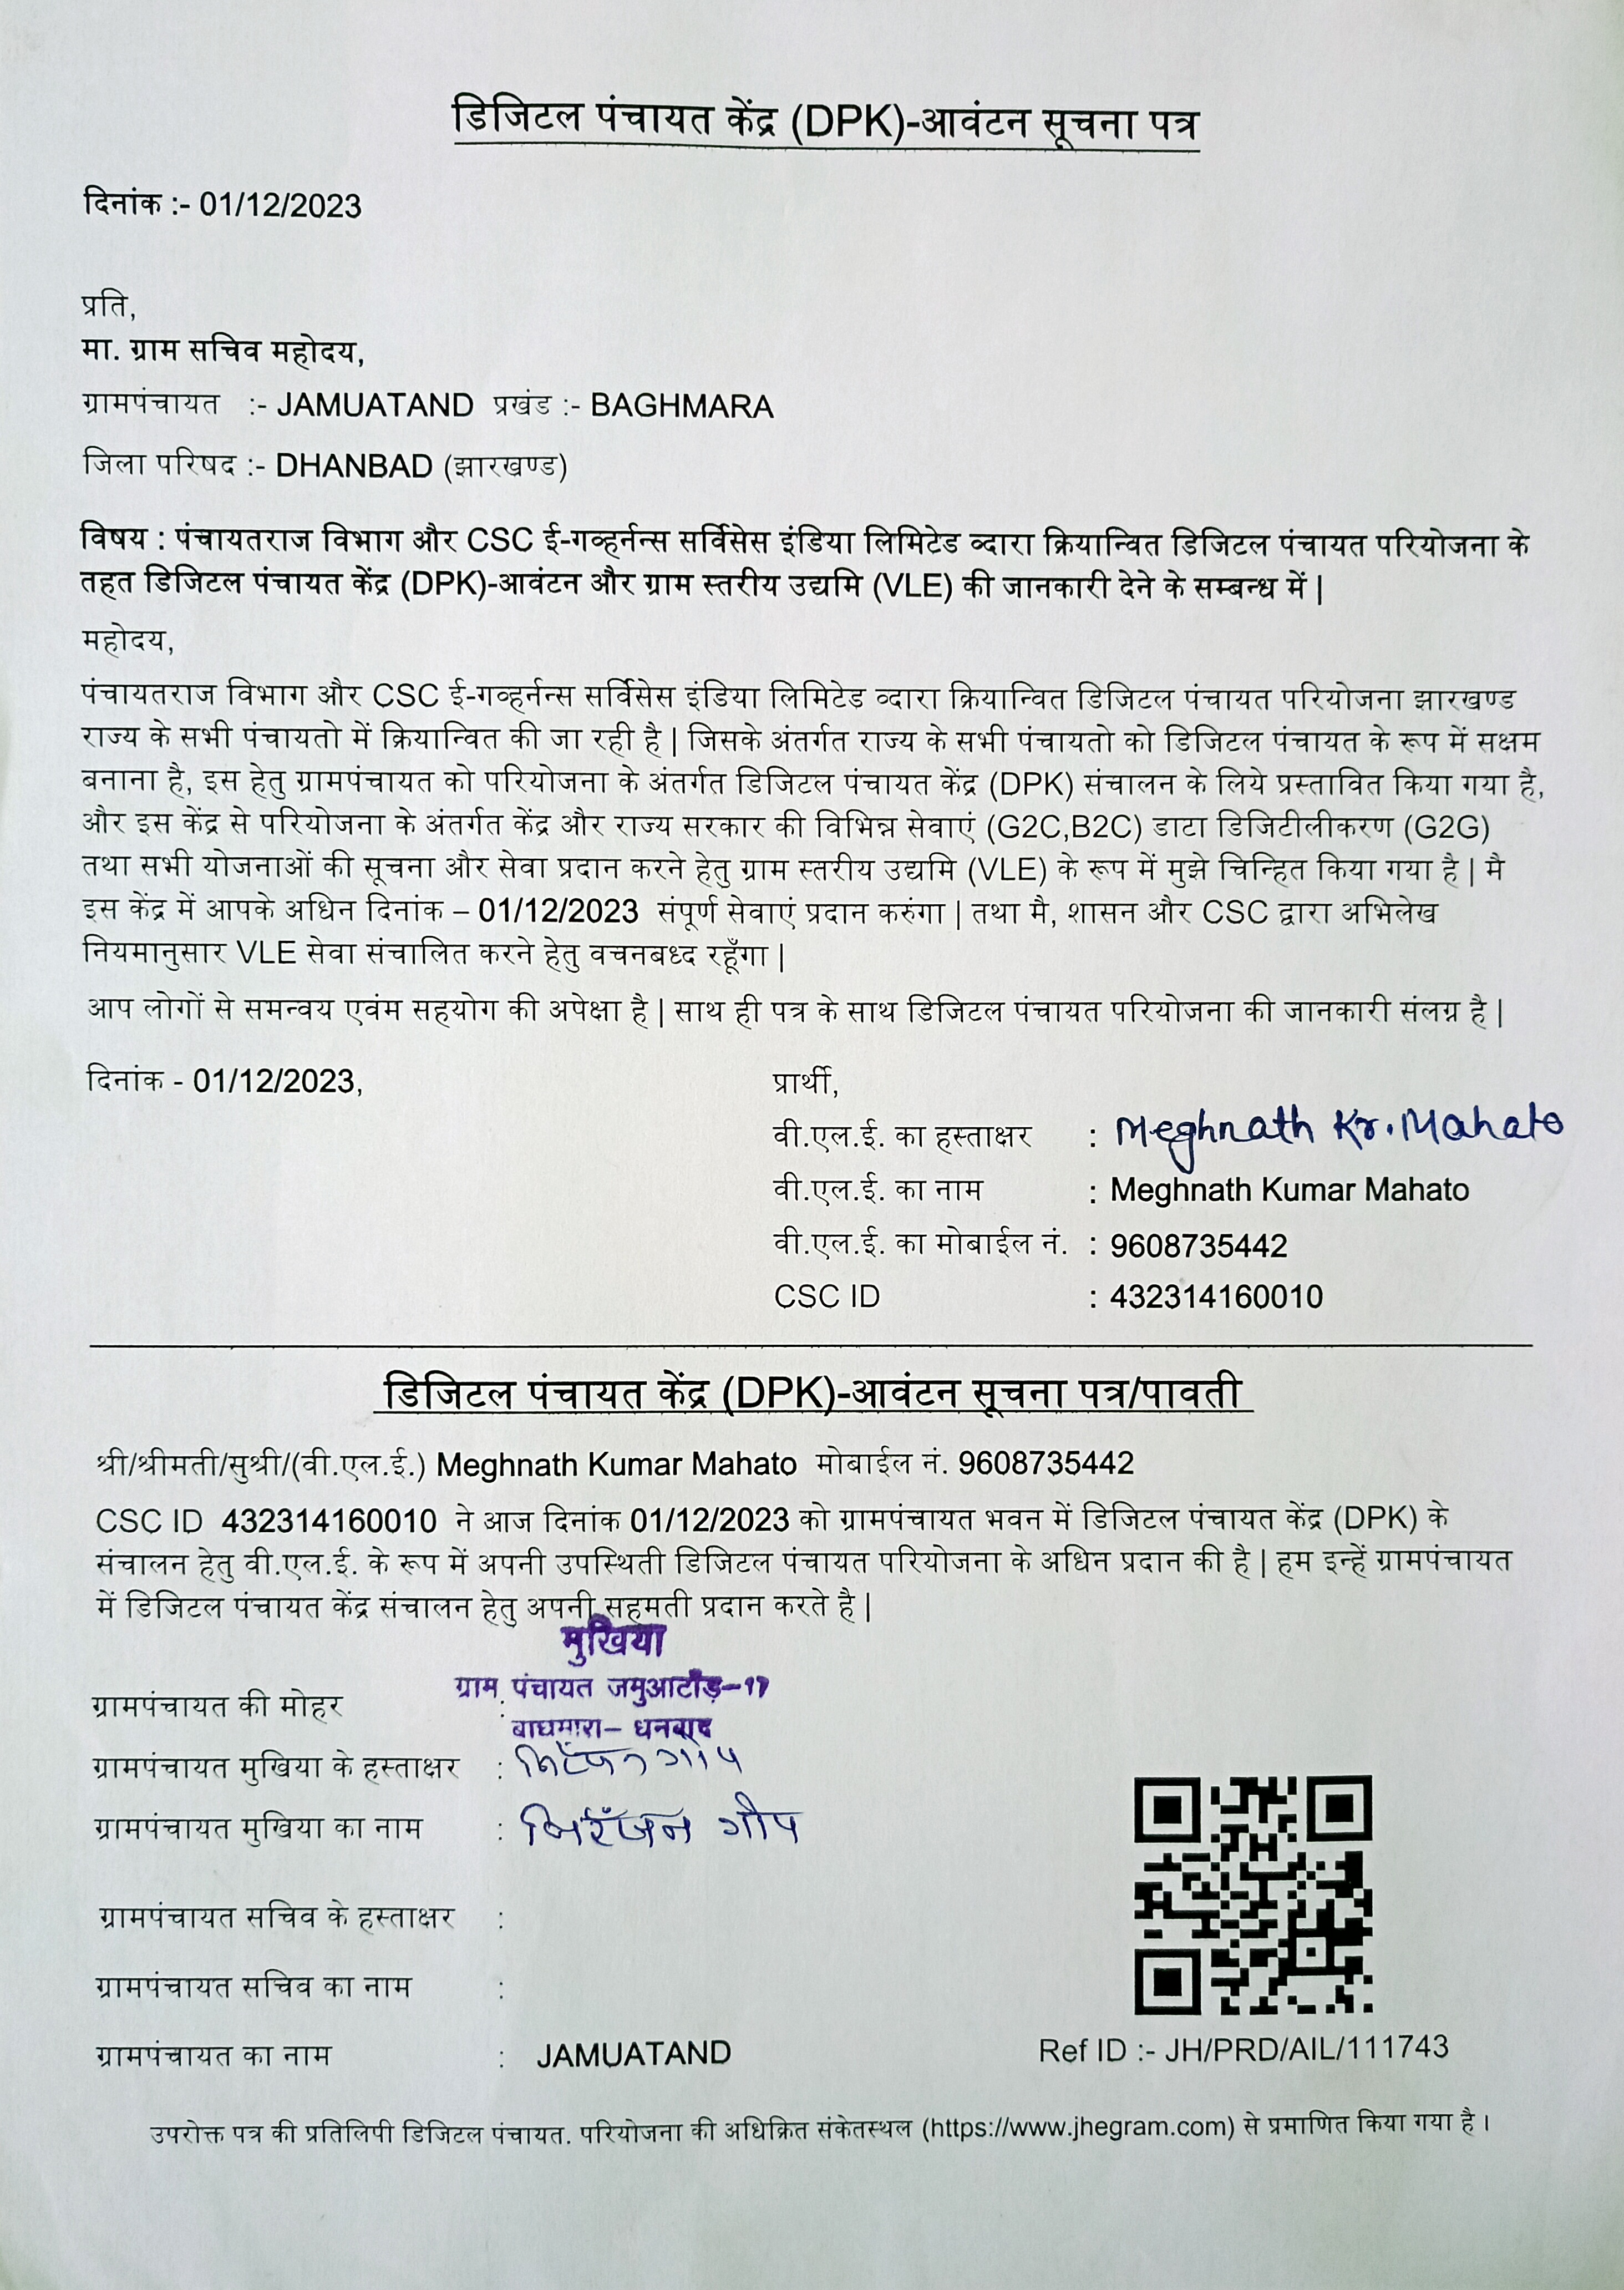 डिजिटल पंचायत केंद्र (DPK)-आवंटन सूचना पत्र
दिनांक :- 01/12/2023
प्रति,
मा. ग्राम सचिव महोदय,
ग्रामपंचायत :- JAMUATAND प्रखंड :- BAGHMARA
जिला परिषद :- DHANBAD (झारखण्ड)
विषय : पंचायतराज विभाग और CSC ई-गव्हर्नन्स सर्विसेस इंडिया लिमिटेड व्दारा क्रियान्वित डिजिटल पंचायत परियोजना के
तहत डिजिटल पंचायत केंद्र (DPK)-आवंटन और ग्राम स्तरीय उद्यमि (VLE) की जानकारी देने के सम्बन्ध में |
महोदय,
पंचायतराज विभाग और CSC ई-गव्हर्नन्स सर्विसेस इंडिया लिमिटेड व्दारा क्रियान्वित डिजिटल पंचायत परियोजना झारखण्ड
राज्य के सभी पंचायतो में क्रियान्वित की जा रही है | जिसके अंतर्गत राज्य के सभी पंचायतो को डिजिटल पंचायत के रूप में सक्षम
बनाना है, इस हेतु ग्रामपंचायत को परियोजना के अंतर्गत डिजिटल पंचायत केंद्र (DPK) संचालन के लिये प्रस्तावित किया गया है,
और इस केंद्र से परियोजना के अंतर्गत केंद्र और राज्य सरकार की विभिन्न सेवाएं (G2C,B2C) डाटा डिजिटीलीकरण (G2G)
तथा सभी योजनाओं की सूचना और सेवा प्रदान करने हेतु ग्राम स्तरीय उद्यमि (VLE) के रूप में मुझे चिन्हित किया गया है | मै
इस केंद्र में आपके अधिन दिनांक – 01/12/2023 संपूर्ण सेवाएं प्रदान करुंगा | तथा मै, शासन और CSC द्वारा अभिलेख
नियमानुसार VLE सेवा संचालित करने हेतु वचनबध्द रहूँगा |
आप लोगों से समन्वय एवंम सहयोग की अपेक्षा है | साथ ही पत्र के साथ डिजिटल पंचायत परियोजना की जानकारी संलग्न है |
दिनांक - 01/12/2023,
प्रार्थी,
वी.एल.ई. का हस्ताक्षर : Meghnath Kr. Mahato
वी.एल.ई. का नाम : Meghnath Kumar Mahato
वी.एल.ई. का मोबाईल नं. : 9608735442
CSC ID : 432314160010
डिजिटल पंचायत केंद्र (DPK)-आवंटन सूचना पत्र/पावती
श्री/श्रीमती/सुश्री/(वी.एल.ई.) Meghnath Kumar Mahato मोबाईल नं. 9608735442
CSC ID 432314160010 ने आज दिनांक 01/12/2023 को ग्रामपंचायत भवन में डिजिटल पंचायत केंद्र (DPK) के
संचालन हेतु वी.एल.ई. के रूप में अपनी उपस्थिती डिजिटल पंचायत परियोजना के अधिन प्रदान की है | हम इन्हें ग्रामपंचायत
में डिजिटल पंचायत केंद्र संचालन हेतु अपनी सहमती प्रदान करते है |
मुखिया
ग्राम पंचायत जमुआटाँड़-17
बाघमारा- धनबाद
ग्रामपंचायत की मोहर :
ग्रामपंचायत मुखिया के हस्ताक्षर : निरँजन गोप
ग्रामपंचायत मुखिया का नाम : निरँजन गोप
ग्रामपंचायत सचिव के हस्ताक्षर :
ग्रामपंचायत सचिव का नाम :
ग्रामपंचायत का नाम : JAMUATAND
Ref ID :- JH/PRD/AIL/111743
उपरोक्त पत्र की प्रतिलिपी डिजिटल पंचायत. परियोजना की अधिक्रित संकेतस्थल (https://www.jhegram.com) से प्रमाणित किया गया है ।